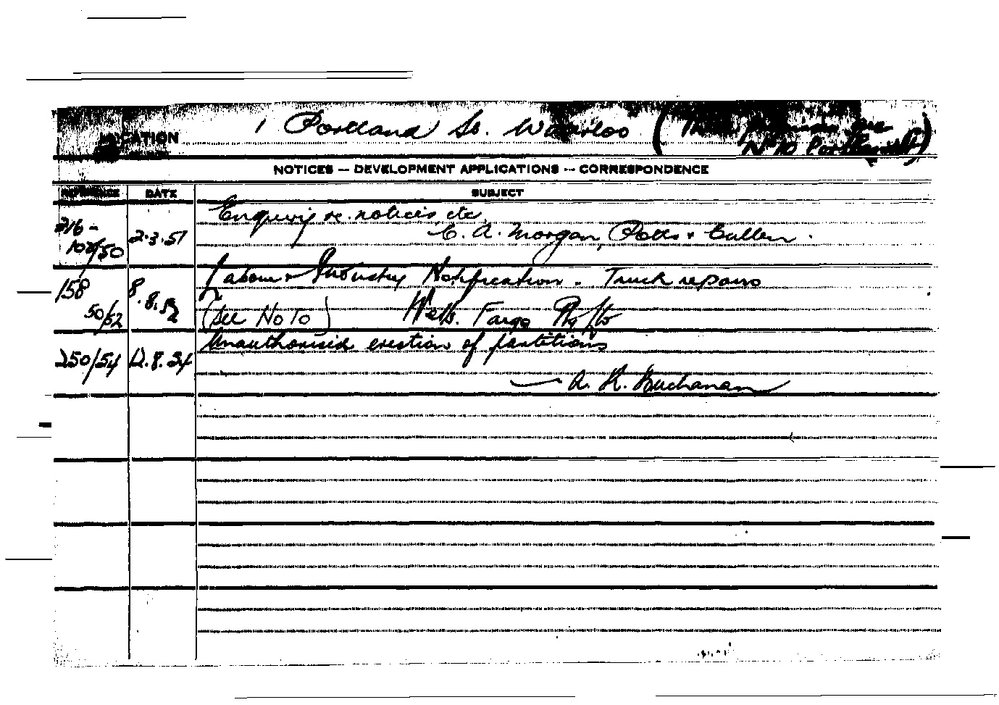 LOCATION 1 Portland St. Waterloo (
No 10 Portland St)
NOTICES — DEVELOPMENT APPLICATIONS — CORRESPONDENCE
REFERENCE DATE SUBJECT
Enquiry re. notices etc
2.3.51 C. A. Morgan, Potts & Cullen.
Labour & Industry Notification. Truck repairs
158 8.8.52
50/52 (See No 10) Wells. Fargo Pty Ltd
Unauthorised erection of partitions
250/54 12.8.54
A. R. Buchanan